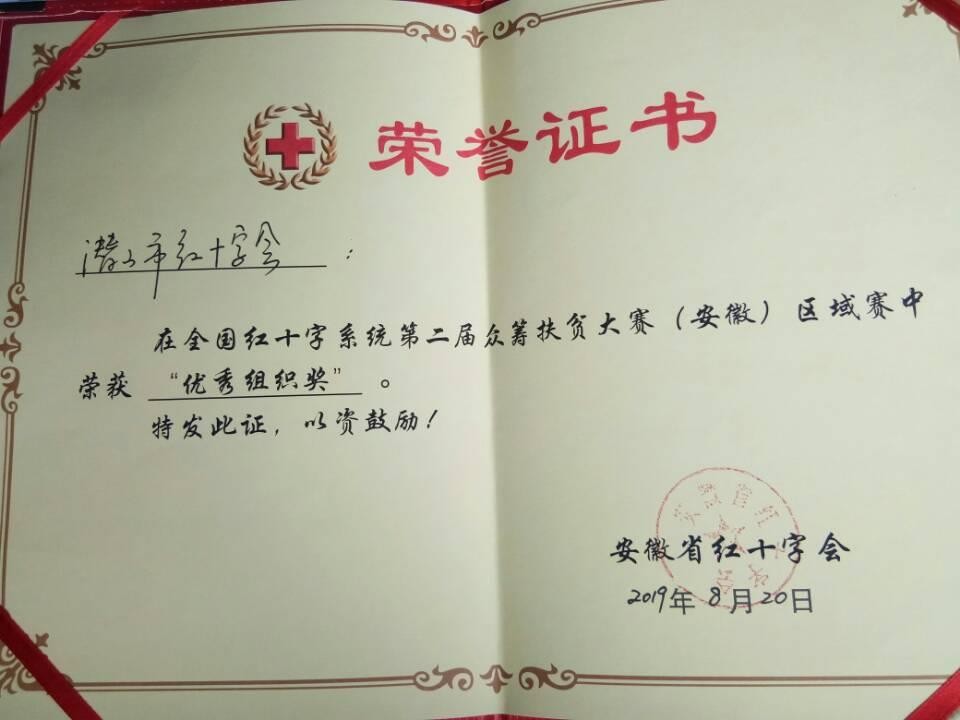 荣誉证书
潜山市红十字会:
在全国红十字系统第二届众筹扶贫大赛(安徽)区域赛中
荣获 “优秀组织奖” 。
特发此证,以资鼓励!
安徽省红十字会
安徽省红十字会
2019年8月20日